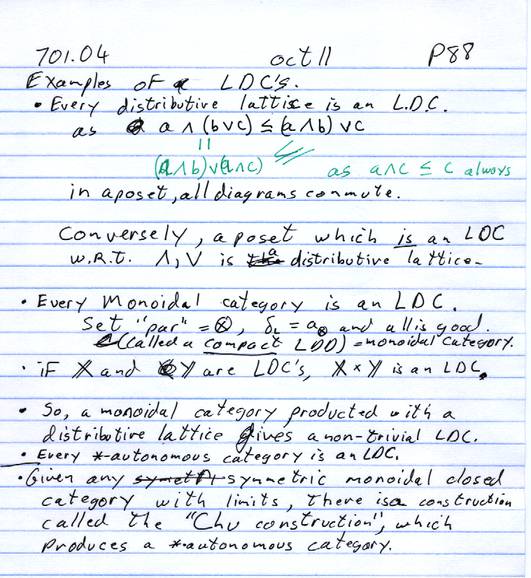 701.04 oct 11 P88
Examples of LDC's.
• Every distributive lattice is an L.D.C.
as a ∧ (b∨c) ≤ (a∧b) ∨c
||
(a∧b)∨(a∧c) as a∧c ≤ c always
in a poset, all diagrams commute.
Conversely, a poset which is an LDC
W.R.T. ∧, ∨ is a distributive lattice.
• Every monoidal category is an LDC.
Set "par" = ⊗, δL = a⊗ and all is good.
(called a compact LDC) = monoidal category.
• if X and Y are LDC's, X × Y is an LDC.
• So, a monoidal category producted with a
distributive lattice gives a non-trivial LDC.
• Every *-autonomous category is an LDC.
• Given any symmetric monoidal closed
category with limits, there is a construction
called the "Chu construction", which
produces a *-autonomous category.